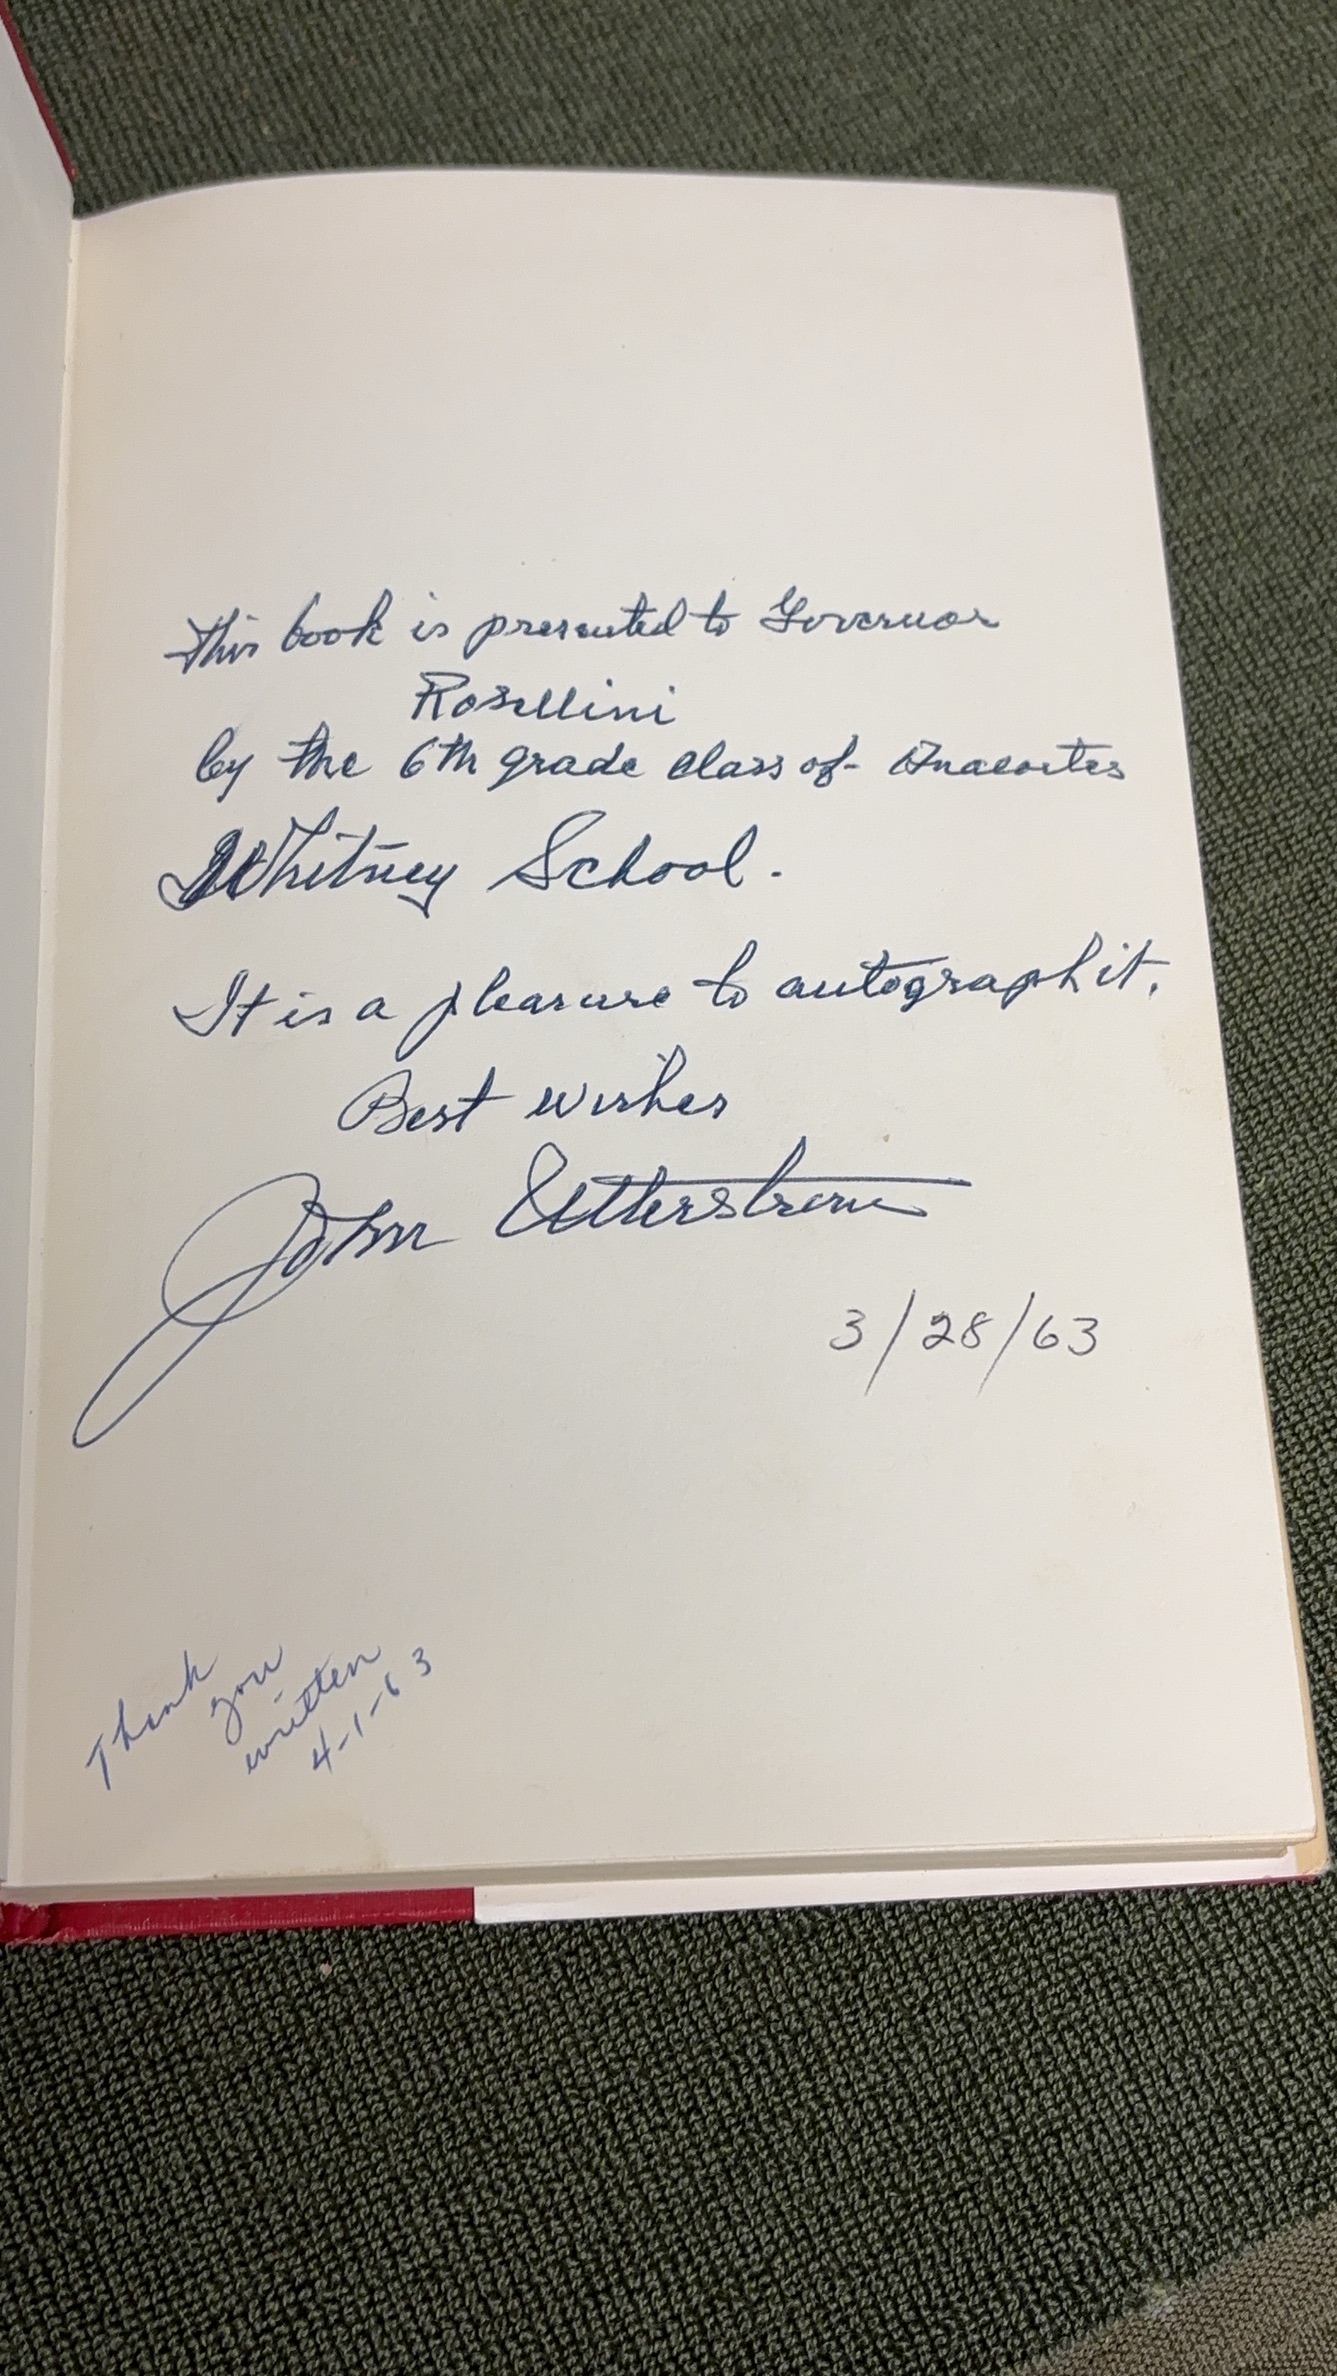 This book is presented to Governor
Rosellini
by the 6th grade class of Anacortes
Whitney School.
It is a pleasure to autograph it.
Best wishes
John Utterstrom
3/28/63
Thank
you
written
4-1-63